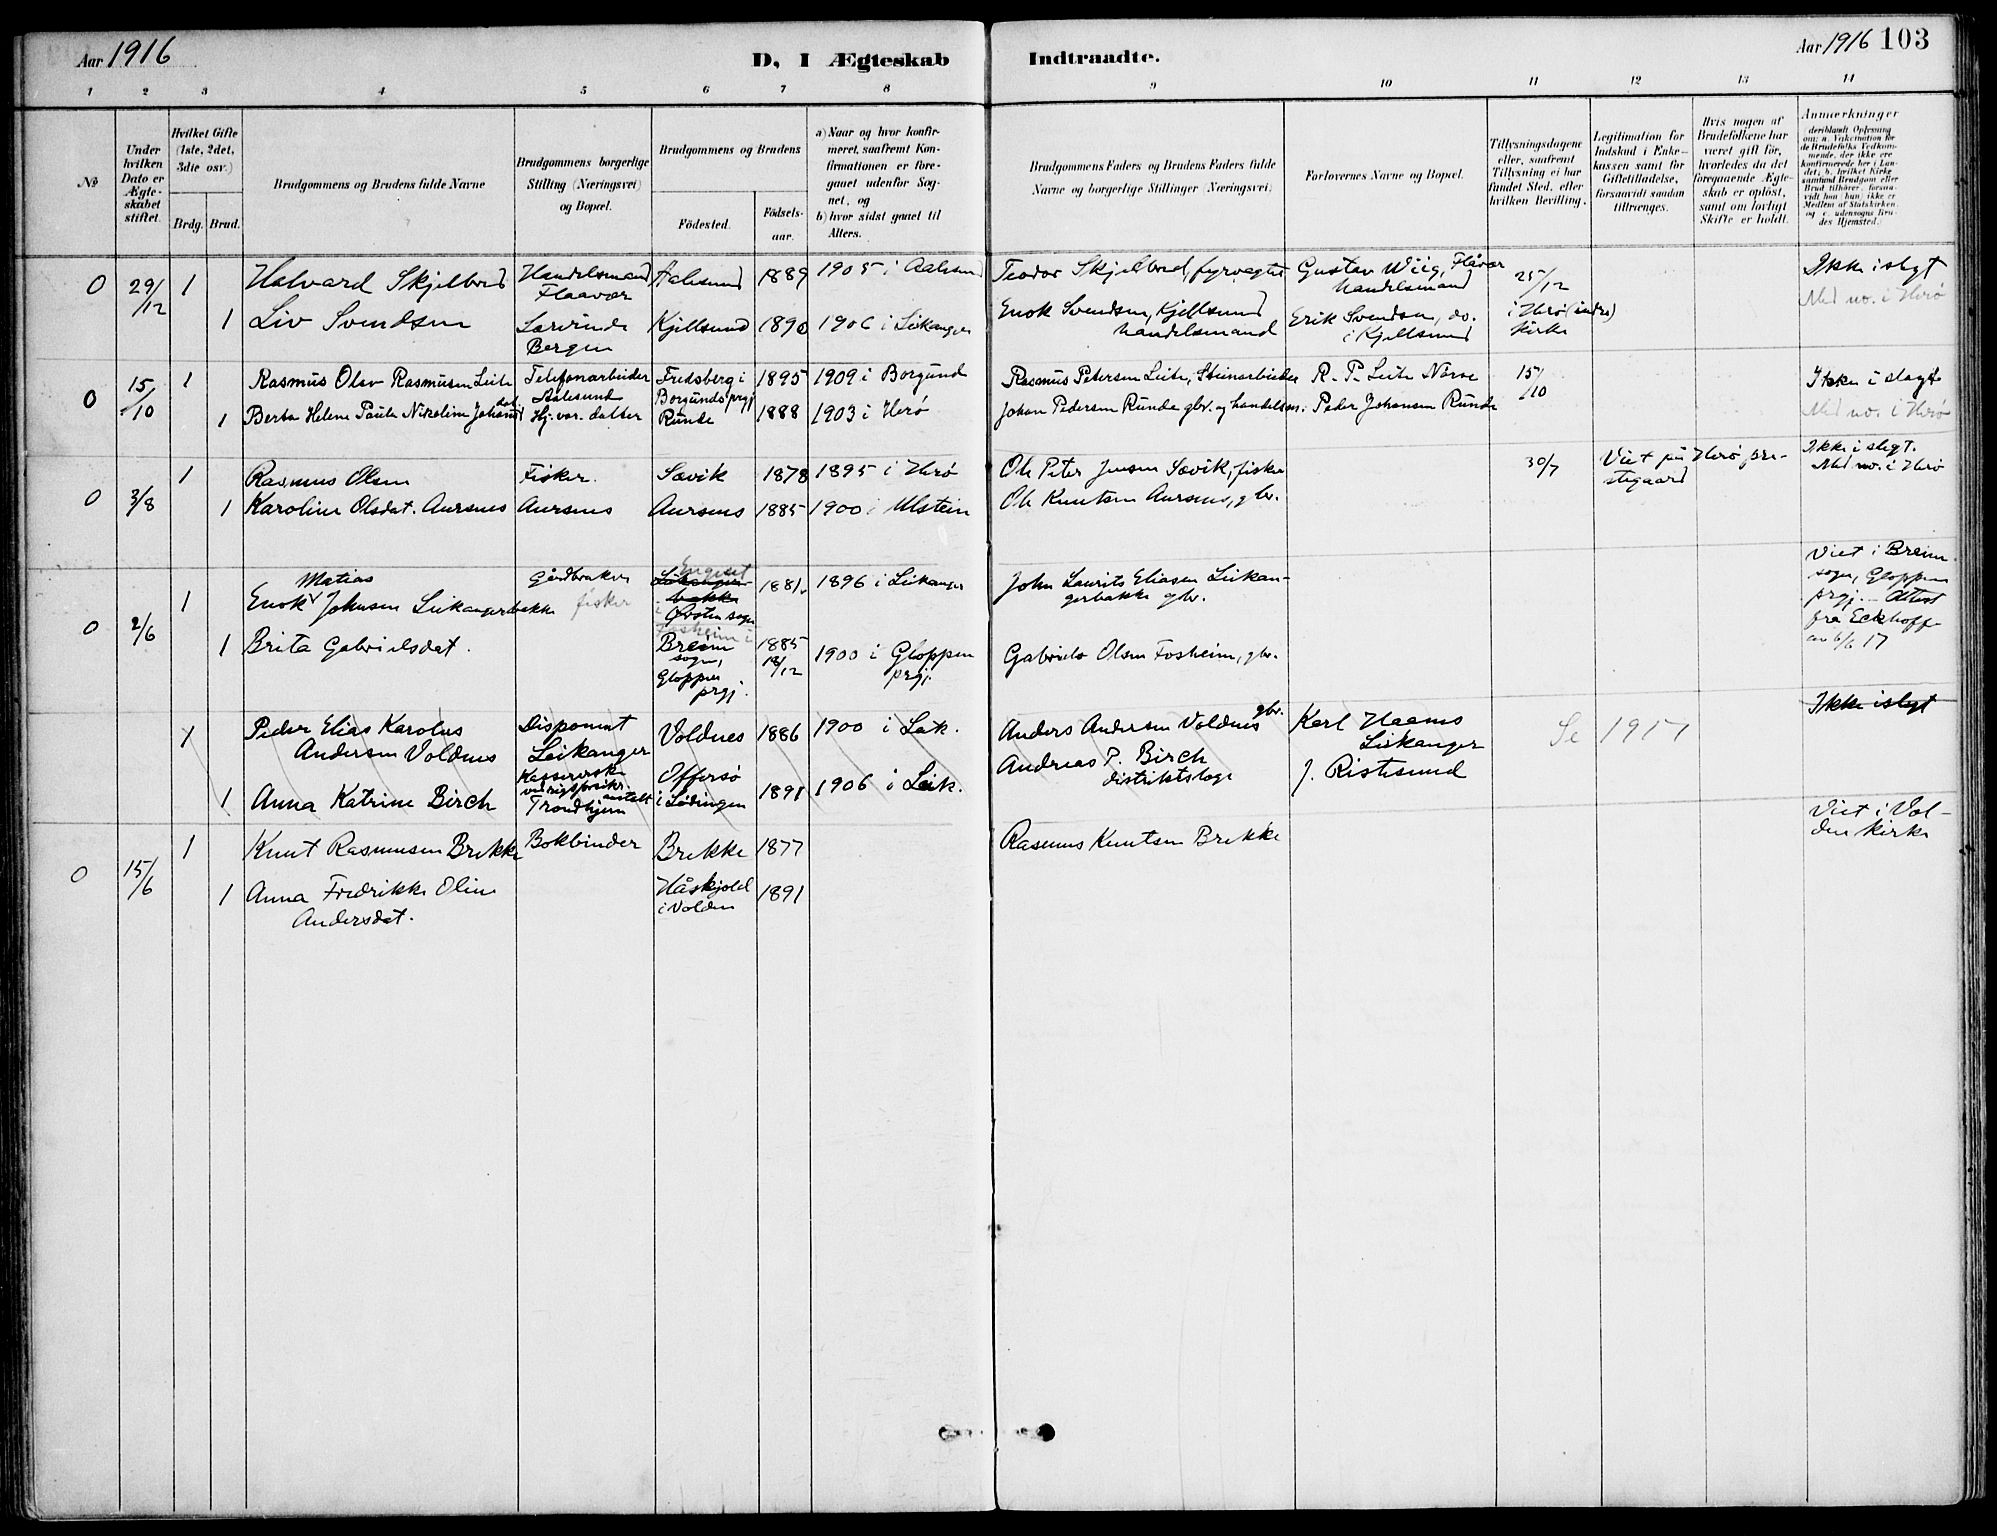 Aar 1916
D, I Ægteskab Indtraadte.
Aar 1916 103
1 2 3 4 5 6 7 8 9 10 11 12 13 14
№
Under hvilken Dato er Ægte-skabet stiftet.
Hvilket Gifte (1ste, 2det, 3die osv.)
Brdg. Brud.
Brudgommens og Brudens fulde Navne
Brudgommens borgerlige Stilling (Næringsvei) og Bopæl.
Brudgommens og Brudens
Födested.
Födsels-aar.
a) Naar og hvor konfir-meret, saafremt Kon-firmationen er fore-gaaet udenfor Sog-net, og
b) hvor sidst gaaet til Alters.
Brudgommens Faders og Brudens Faders fulde Navne og borgerlige Stillinger (Næringsvei)
Forlovernes Navne og Bopæl.
Tillysningsdagene eller, saafremt Tillysning ei har fundet Sted, efter hvilken Bevilling.
Legitimation for Indskud i Enke-kassen samt for Giftetilladelse, forsaavidt saadan tiltrænges.
Hvis nogen af Brudefolkene har været gift för, hvorledes da det foregaaende Ægte-skab er oplöst, samt om lovligt Skifte er holdt.
Anmærkninger
deriblandt Oplysning om: a. Vakcination for de Brudefolks Vedkom-mende, der ikke ere konfirmerede her i Lan-det; b. hvilket Kirke samfund Brudgom eller Brud tilhörer, forsaa-vidt han (hun) ikke er Medlem af Statskirken, og c. udensogns Bru-des Hjemsted.
0 29/12 1 Halvard Skjelbred Handelsmand Flaavær Aalesund 1889 1905 i Aalesund Teodor Skjelbred, fyrvogter Gustav Wiig, Flåvær handelsmand 25/12 Ikke i slegt
1 Liv Svendsen Lærerinde Bergen Kjellsund 1890 1906 i Leikanger Enok Svendsen, Kjellsund handelsmand Erik Svendsen, do. i Kjellsund i Herø (indre) kirke Med no. i Herø
0 15/10 1 Rasmus Olav Rasmussen Leite Telefonarbeider Aalesund Fredsberg i Borgunds prgj 1895 1909 i Borgund Rasmus Petersen Leite, Steinarbeider R. P. Leite Nörve 15/10 Ikke i slegt
1 Berta Helene Paula Nikoline Johansdat. Hj. vær. datter Runde 1888 1903 i Herø Johan Pedersen Runde gbr. og handelsm. Peder Johansen Runde Med no. i Herø
0 3/8 1 Rasmus Olsen Fisker. Sævik 1878 1895 i Herø Ole Peter Jensen Sævik, fisker 30/7 Viet på Herø pre-stegaard Ikke i slegt. Med no. i Herø
1 Karoline Olsdat. Aursnes Aursnes Aursnes 1885 1900 i Ulstein Ole Knutsen Aursnes, gbr.
0 2/6 1 Enok Matias Johnsen Leikangerbakke Gårdbruker fisker Leikanger-bakke Engeset i Ørsten sogn 1881. 1896 i Leikanger John Laurits Eliasen Leikan-gerbakke gbr. Viet i Breim sogn, Gloppen prgj. - Attest fra Eckhoff av 6/6 17
1 Brita Gabrielsdat. Fosheim i Breim sogn, Gloppen prgj. 1885 18/12 1900 i Gloppen prgj. Gabriels Olsen Fosheim, gbr.
1 Peder Elias Karolus Andersen Voldnes Disponent Leikanger Voldnes 1886 1900 i Leik. Anders Andersen Voldnes gbr. Karl Haams Leikanger Se 1917 Ikke i slegt
1 Anna Katrine Birch Kassererske Trondhjem Offersø i Lødingen 1891 1906 i Leik. Andreas P. Birch distriktslæge J. Ristesund
0 15/6 1 Knut Rasmussen Brekke Bokbinder Brekke 1877 Rasmus Knutsen Brekke Viet i Vol-den kirke
1 Anna Fredrikke Oline Andersdat. Håskjold i Volden 1891